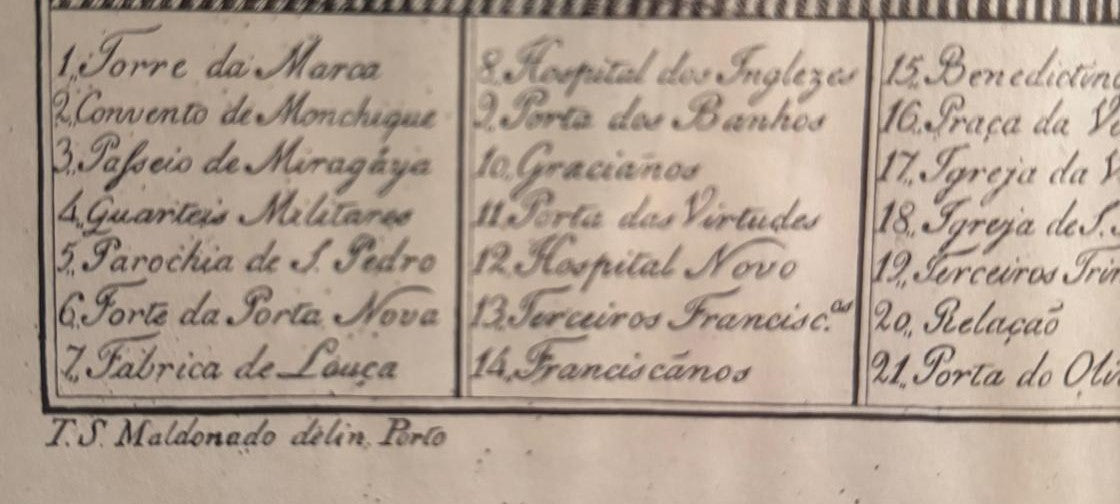 1,, Torre da Marca
2,, Convento de Monchique
3,, Paſseio de Miragáya
4,, Quarteis Militares
5,, Parochia de S. Pedro
6,, Forte da Porta Nova
7,, Fabrica de Louça
8,, Hospital dos Inglezes
9,, Porta dos Banhos
10,, Gracianos
11,, Porta das Virtudes
12,, Hospital Novo
13,, Terceiros Francisc.os
14,, Franciscános
15,, Benedictin
16,, Praça da
17,, Igreja da
18,, Igreja de S.
19,, Terceiros Tri
20,, Relaçaõ
21,, Porta do Oli
T. S. Maldonado delin. Porto